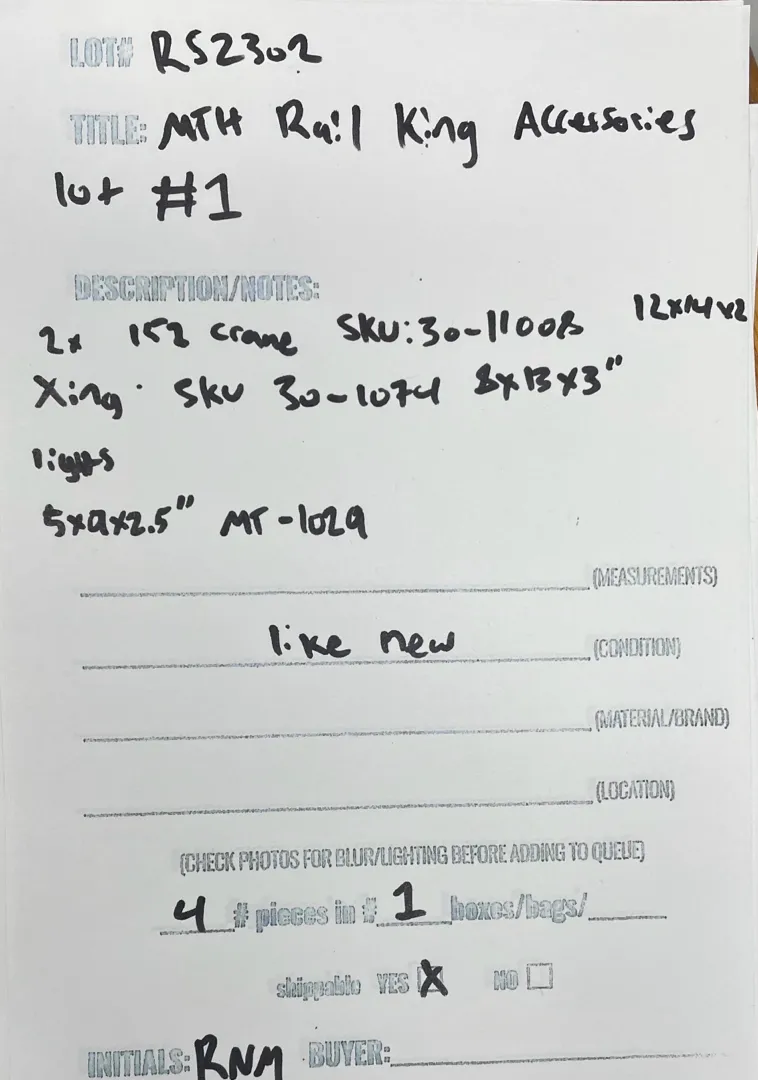 LOT# RS2302
TITLE: MTH Rail King Accessories
lot #1
DESCRIPTION/NOTES:
2x 152 crane SKU: 30-11008 12x14x2
Xing SKU 30-1074 8x13x3"
lights
5x9x2.5" MT-1029
(MEASUREMENTS)
like new (CONDITION)
(MATERIAL/BRAND)
(LOCATION)
(CHECK PHOTOS FOR BLUR/LIGHTING BEFORE ADDING TO QUEUE)
4 # pieces in # 1 boxes/bags/
shippable YES X NO
INITIALS: RNM BUYER: